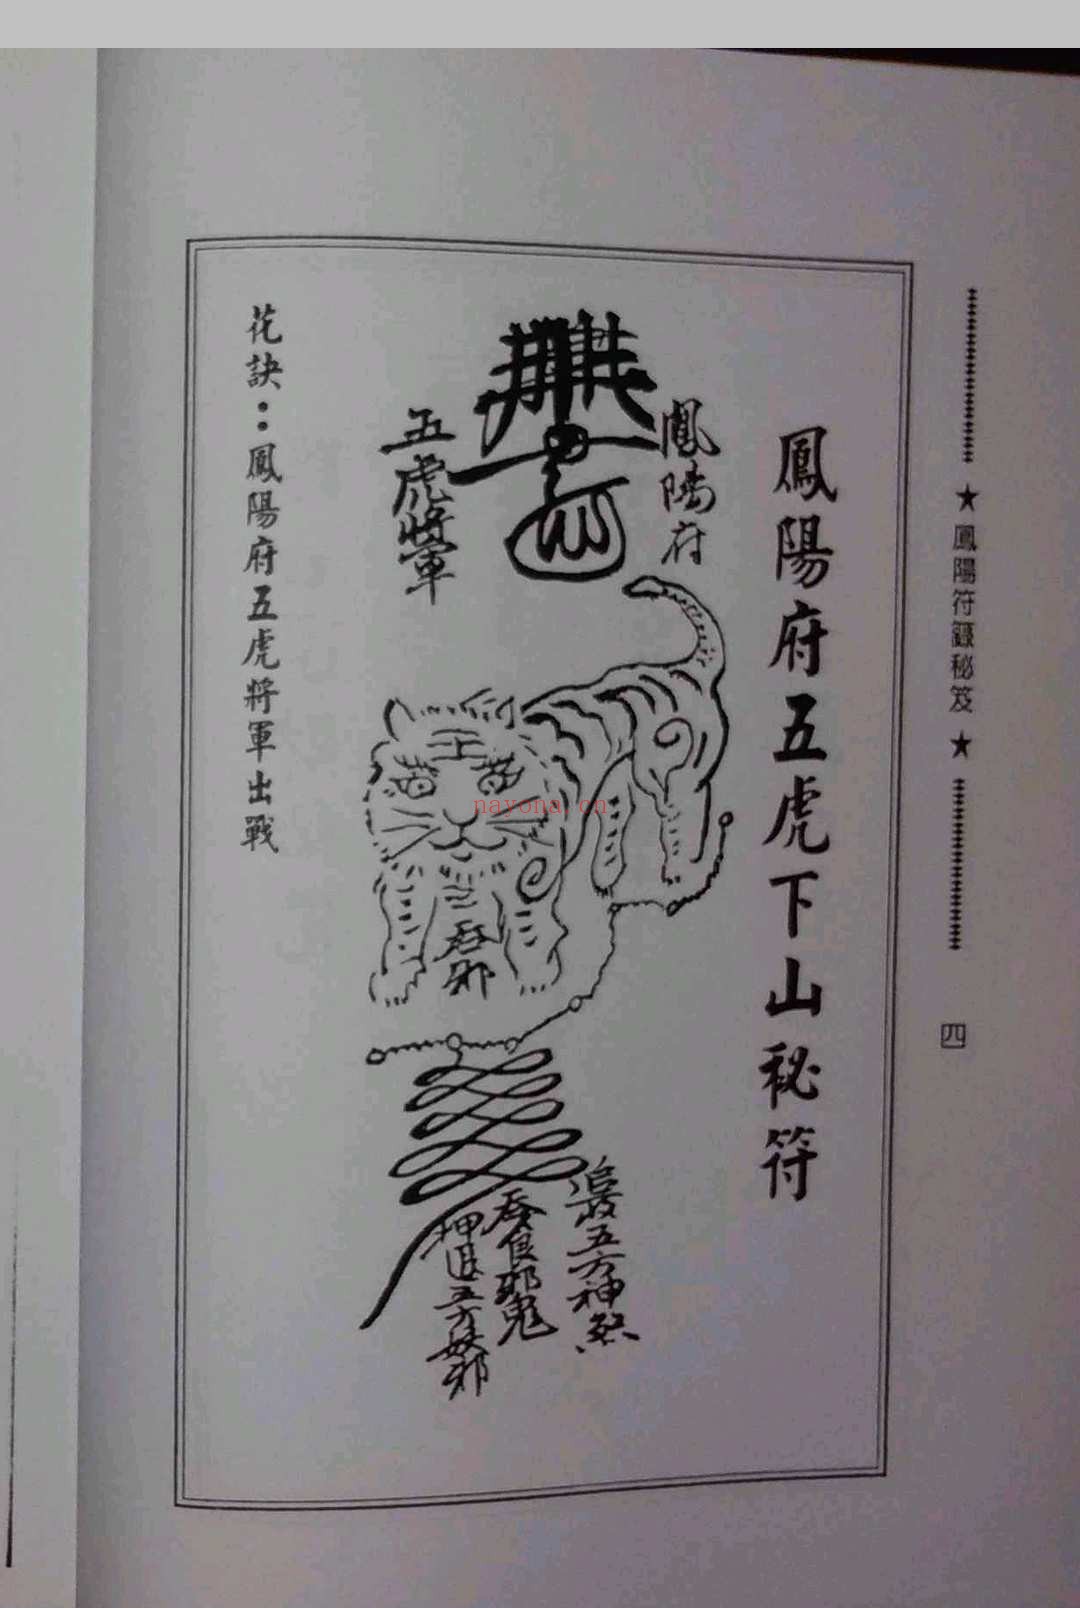 ★鳳陽符籙秘笈★
四
鳳陽府五虎下山秘符
鳳陽府
五虎將軍
王
吞邪
追收五方神煞
吞食邪鬼
押退五方妖邪
花訣：鳳陽府五虎將軍出戰
nayona.cn